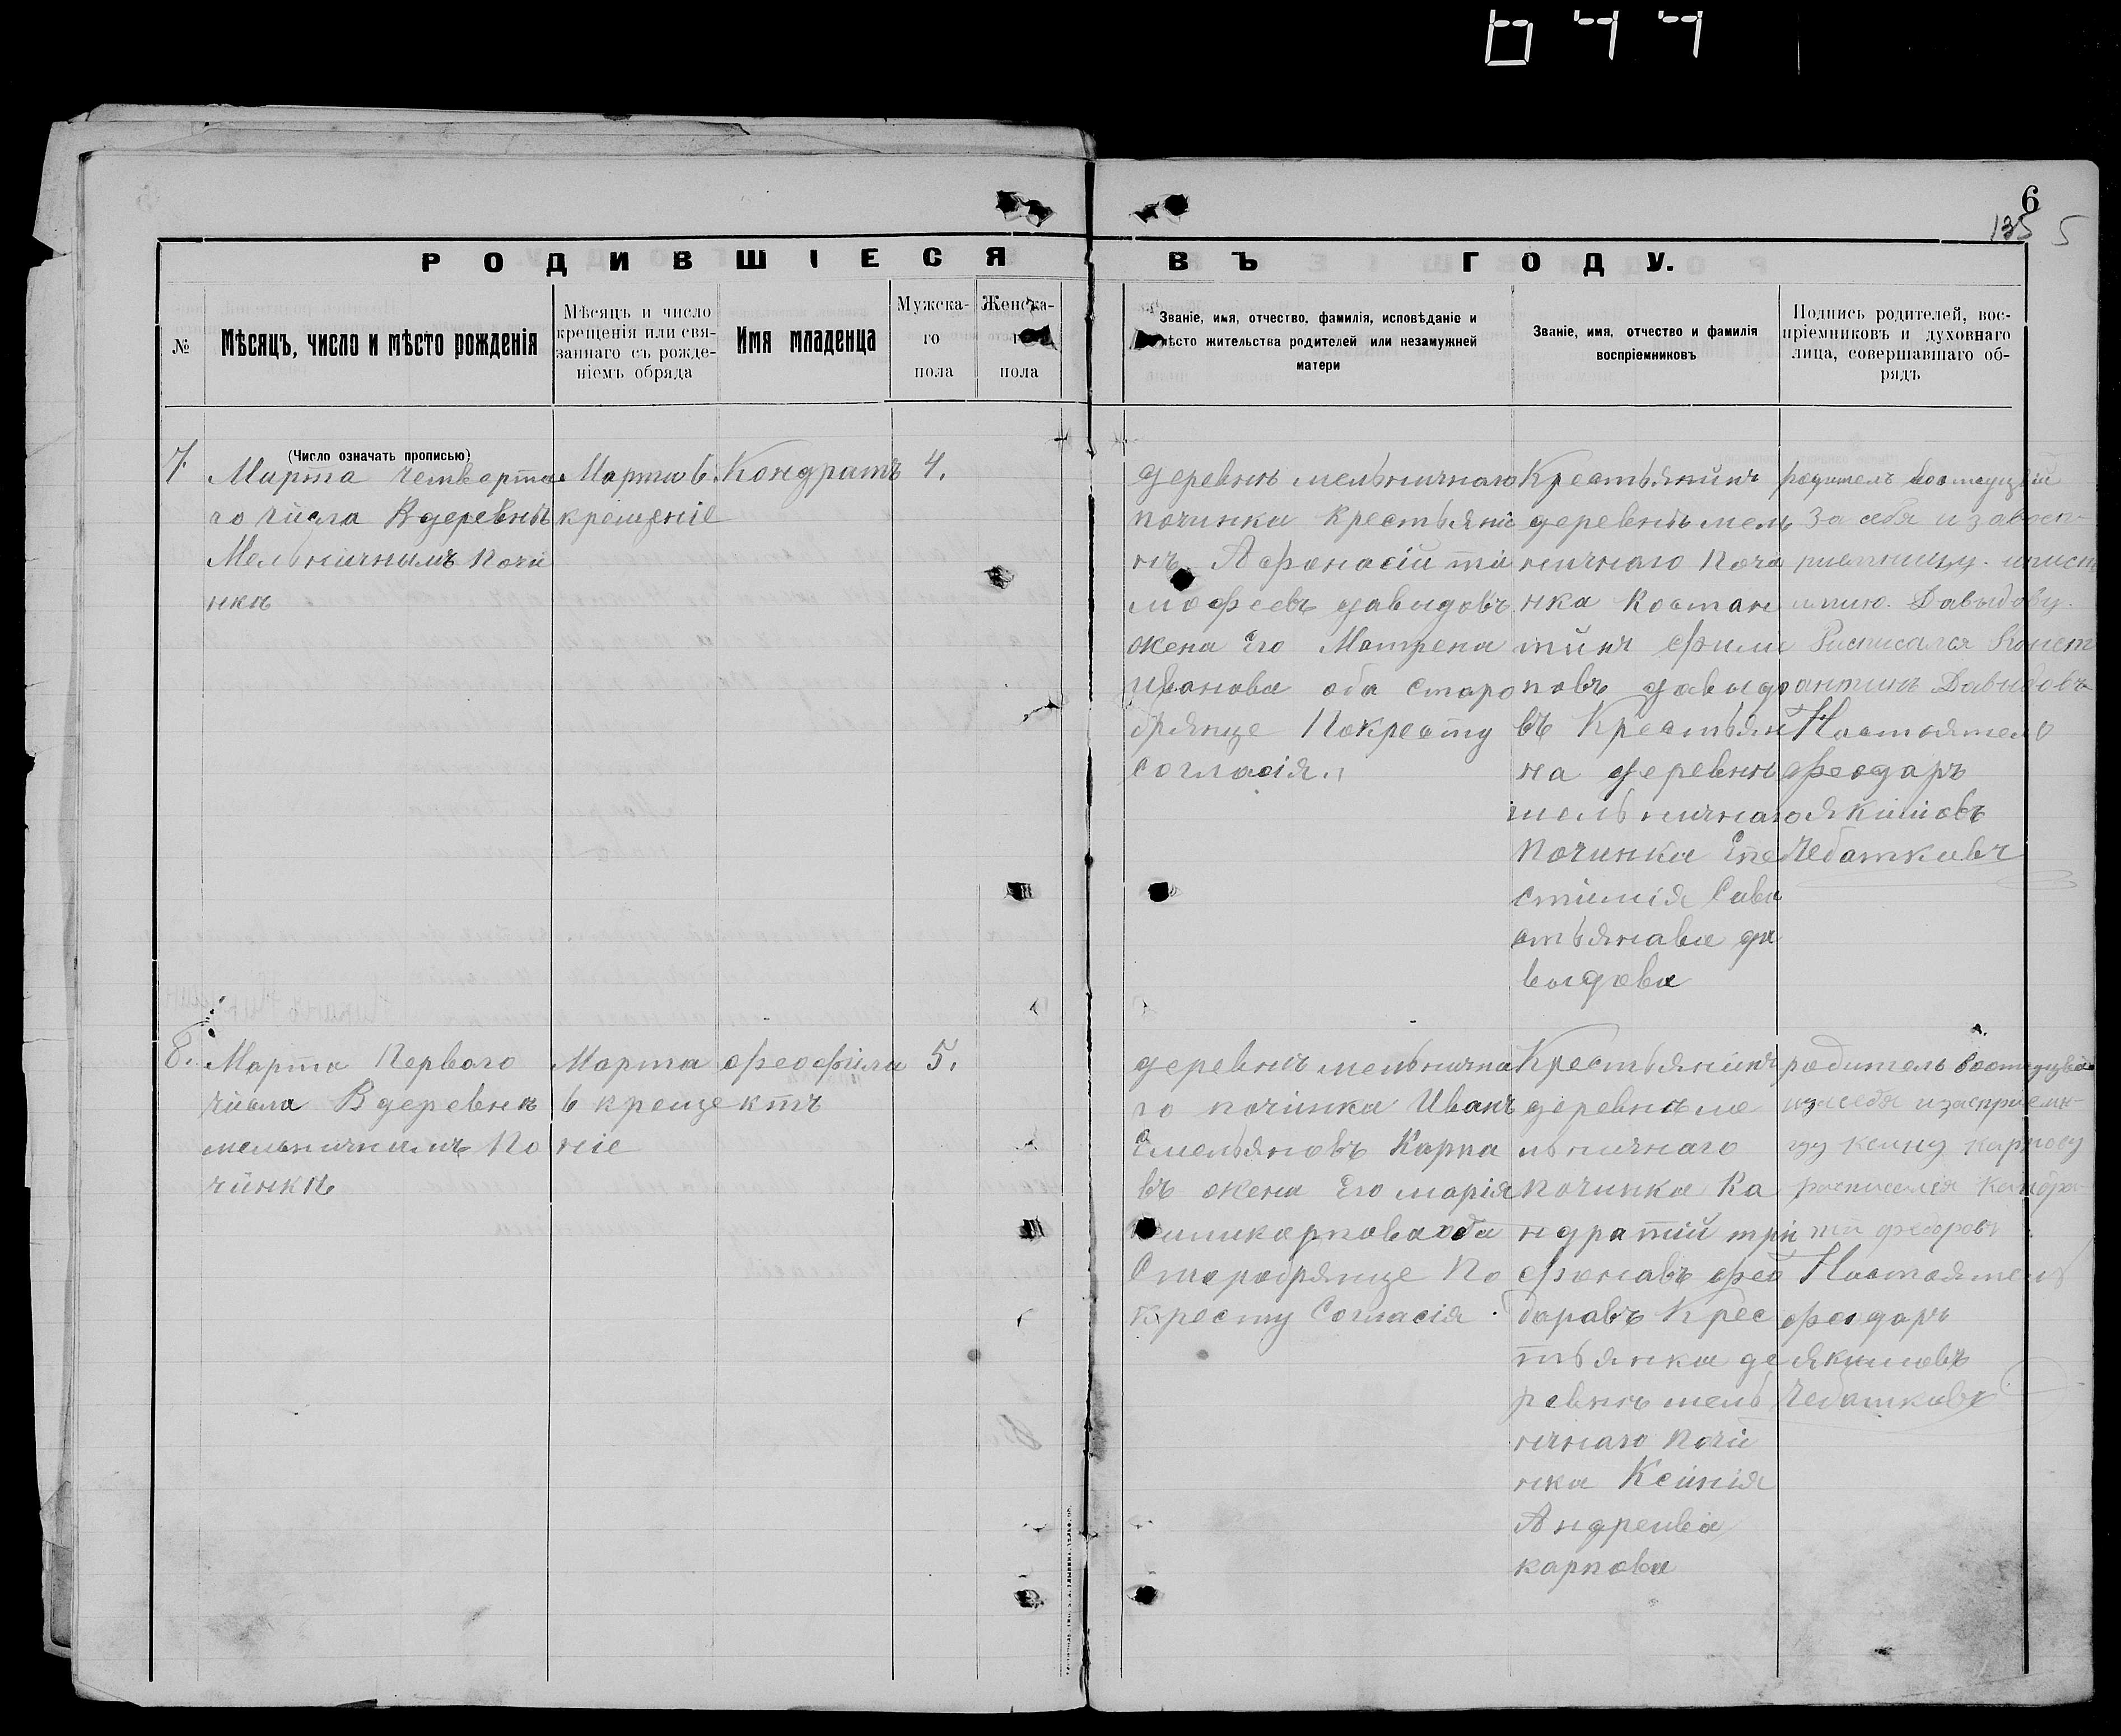 6
135 5
РОДИВШІЕСЯ ВЪ ГОДУ.
№
Мѣсяцъ, число и мѣсто рожденія
Мѣсяцъ и число
крещенія или свя-
заннаго съ рожде-
ніемъ обряда
Имя младенца
Мужска-
го
пола
Женска-
пола
Званіе, имя, отчество, фамилія, исповѣданіе и
мѣсто жительства родителей или незамужней
матери
Званіе, имя, отчество и фамилія
воспріемниковъ
Подпись родителей, вос-
пріемниковъ и духовнаго
лица, совершавшаго об-
рядъ
(Число означать прописью)
7.
Марта четверта
го числа В деревнѣ
Мельничнымъ почи
нкѣ
Марта 6.
крещеніе
Кондратъ
4.
деревнѣ мельничнаго
починка крестьяни
нъ Афонасій ти
мофеевъ давыдовъ
жена Его Матрена
Иванова оба старо
брянце Покресту
согласія.
Крестьянинъ
деревнѣ мель
ничнаго почи
нка Костан
тинъ Фили
повъ давыдо
въ Крестьян
на деревнѣ
мельничнаго
починка Епе
стимия Сава
стьянава да
выдова
родитель
за себя и
Давыдову.
Росписался Конст
антинъ Давыдовъ
Настоятель
феодаръ
якимовъ
Чебаткавъ
8.
Марта Первого
числа В деревнѣ
мельничнымъ По
чинкѣ
Марта
6 креще
ніе
феофила
ктъ
5.
деревнѣ мельнична
го починка Иванъ
Емельяновъ Карпа
въ жена Его марія
поликарповаоба
Старобрянце По
кресту Согласія
Крестьянинъ
деревнѣ ме
льничнаго
починка Ка
ндратий три
фонавъ фео
даравъ Крес
тьянка де
ревнѣ мель
ничнаго почи
нка Ксиния
Андреива
карпова
родитель
карпову
росписался Кандра-
тий федоровъ
Настоятель
феодаръ
якимовъ
Чебаткавъ